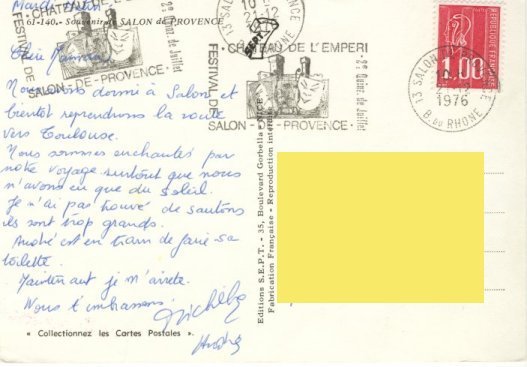 Mardi matin
61-140. - Souvenir de SALON de PROVENCE
Chère Maman
Nous avons dormi à Salon et
bientôt reprendrons la route
vers Toulouse.
Nous sommes enchantés par
notre voyage surtout que nous
n'avons eu que du soleil.
Je n'ai pas trouvé de santons
ils sont trop grands.
André est en train de faire sa
toilette.
Maintenant je m'arrete.
Nous t'embrassons.
Michèle
André
« Collectionnez les Cartes Postales ».
CHATEAU DE L'EMPERI
FESTIVAL DE
SALON-DE-PROVENCE
2e Quinz. de Juillet
13 SALON PROVENCE
21-12
CHATEAU DE L'EMPERI
FESTIVAL DE
SALON-DE-PROVENCE
2e Quinz. de Juillet
SEPT
Editions S.E.P.T. - 35, Boulevard Gorbella
Fabrication Française - Reproduction interdite
REPUBLIQUE FRANCAISE
1,00
13 SALON PROVENCE
1976
B. du RHONE